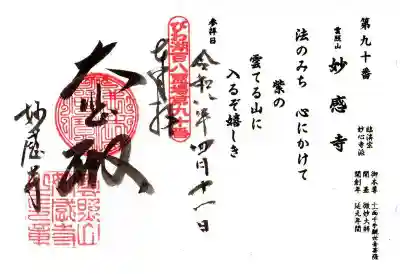 第九十番
雲照山 妙感寺
臨済宗
妙心寺派
御本尊 十一面千手観世音菩薩
開基 微妙大師
開創年 延元年間
法のみち 心にかけて
紫の
雲てる山に
入るぞ嬉しき
参拝日
令和六年四月十一日
びわ湖百八霊場第九十番
奉拝
大悲殿
妙感寺
雲照山
妙感寺